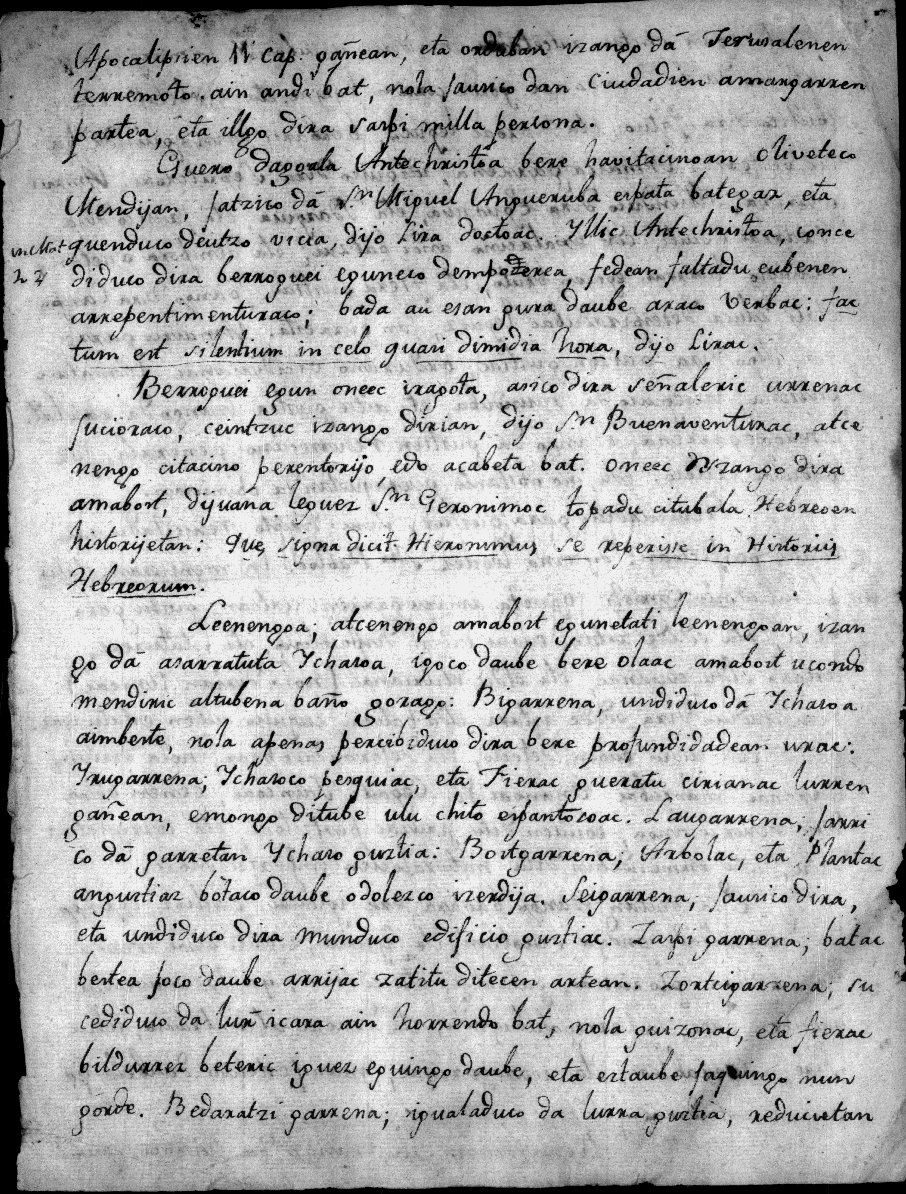 Apocalipsien 11 cap: gañean, eta orduban izango dā Jerusalenen
terremoto ain andi bat, nola jausico dan Ciudadien amargarren
partea, eta illgo dira saspi milla persona.
Guero dagoala Antechristoa bere havitacinoan Oliveteco
Mendijan, jatzico dā S.n Miguel Angueruba espata bategaz, eta
in Mat quenduco deutzo vicia, dijo Lira doctoac. Yllic Antechristoa, conce
24 diduco dira berroguei eguneco dempo, fedean faltadu eubenen
arrepentimenturaco: bada au esan gura daube araco verbac: fac
tum est silentium in celo quasi dimidia hora, dijo Lirac.
Berroguei egun oneec iragota, asico dira señaleric urrenac
juicioraco, ceintzuc izango dirian, dijo S.n Buenaventurac, atce
nengo citacino perentorijo, edo acabeta bat. Oneec izango dira
amabost, dijuana leguez S.n Geronimoc topadu citubala Hebreoen
historijetan: Quę signa dicit Hieronimus se reperisse in Historiis
Hebreorum.
Leenengoa; atcenengo amabost egunetati leenengoan, izan
go dā asarratuta Ychasoa, igoco daube bere olaac amabost ucondo
mendiric altubena baño gorago: Bigarrena, undiduco dā Ychasoa
aimbeste, nola apenas percibiduco dira bere profundidadean urac:
Yrugarrena; Ychasoco pesquiac, eta Fierac gueratu cirianac lurren
gañean, emongo ditube ulu chito espantosoac. Laugarrena; jarri
co dā garretan Ychaso guztia: Bostgarrena; Arbolac, eta Plantac
angustiaz botaco daube odolezco izerdija. Seigarrena, jausico dira,
eta undiduco dira munduco edificio guztiac. Zaspigarrena; batac
bestea joco daube arrijac zatitu ditecen artean. Zortcigarrena; su
cediduco da lur icara ain horrendo bat, nola guizonac, eta fierac
bildurrez beteric iguez eguingo daube, eta eztaube jaquingo nun
gorde. Bedaratzigarrena; igualaduco da lurra guztia, reducietan